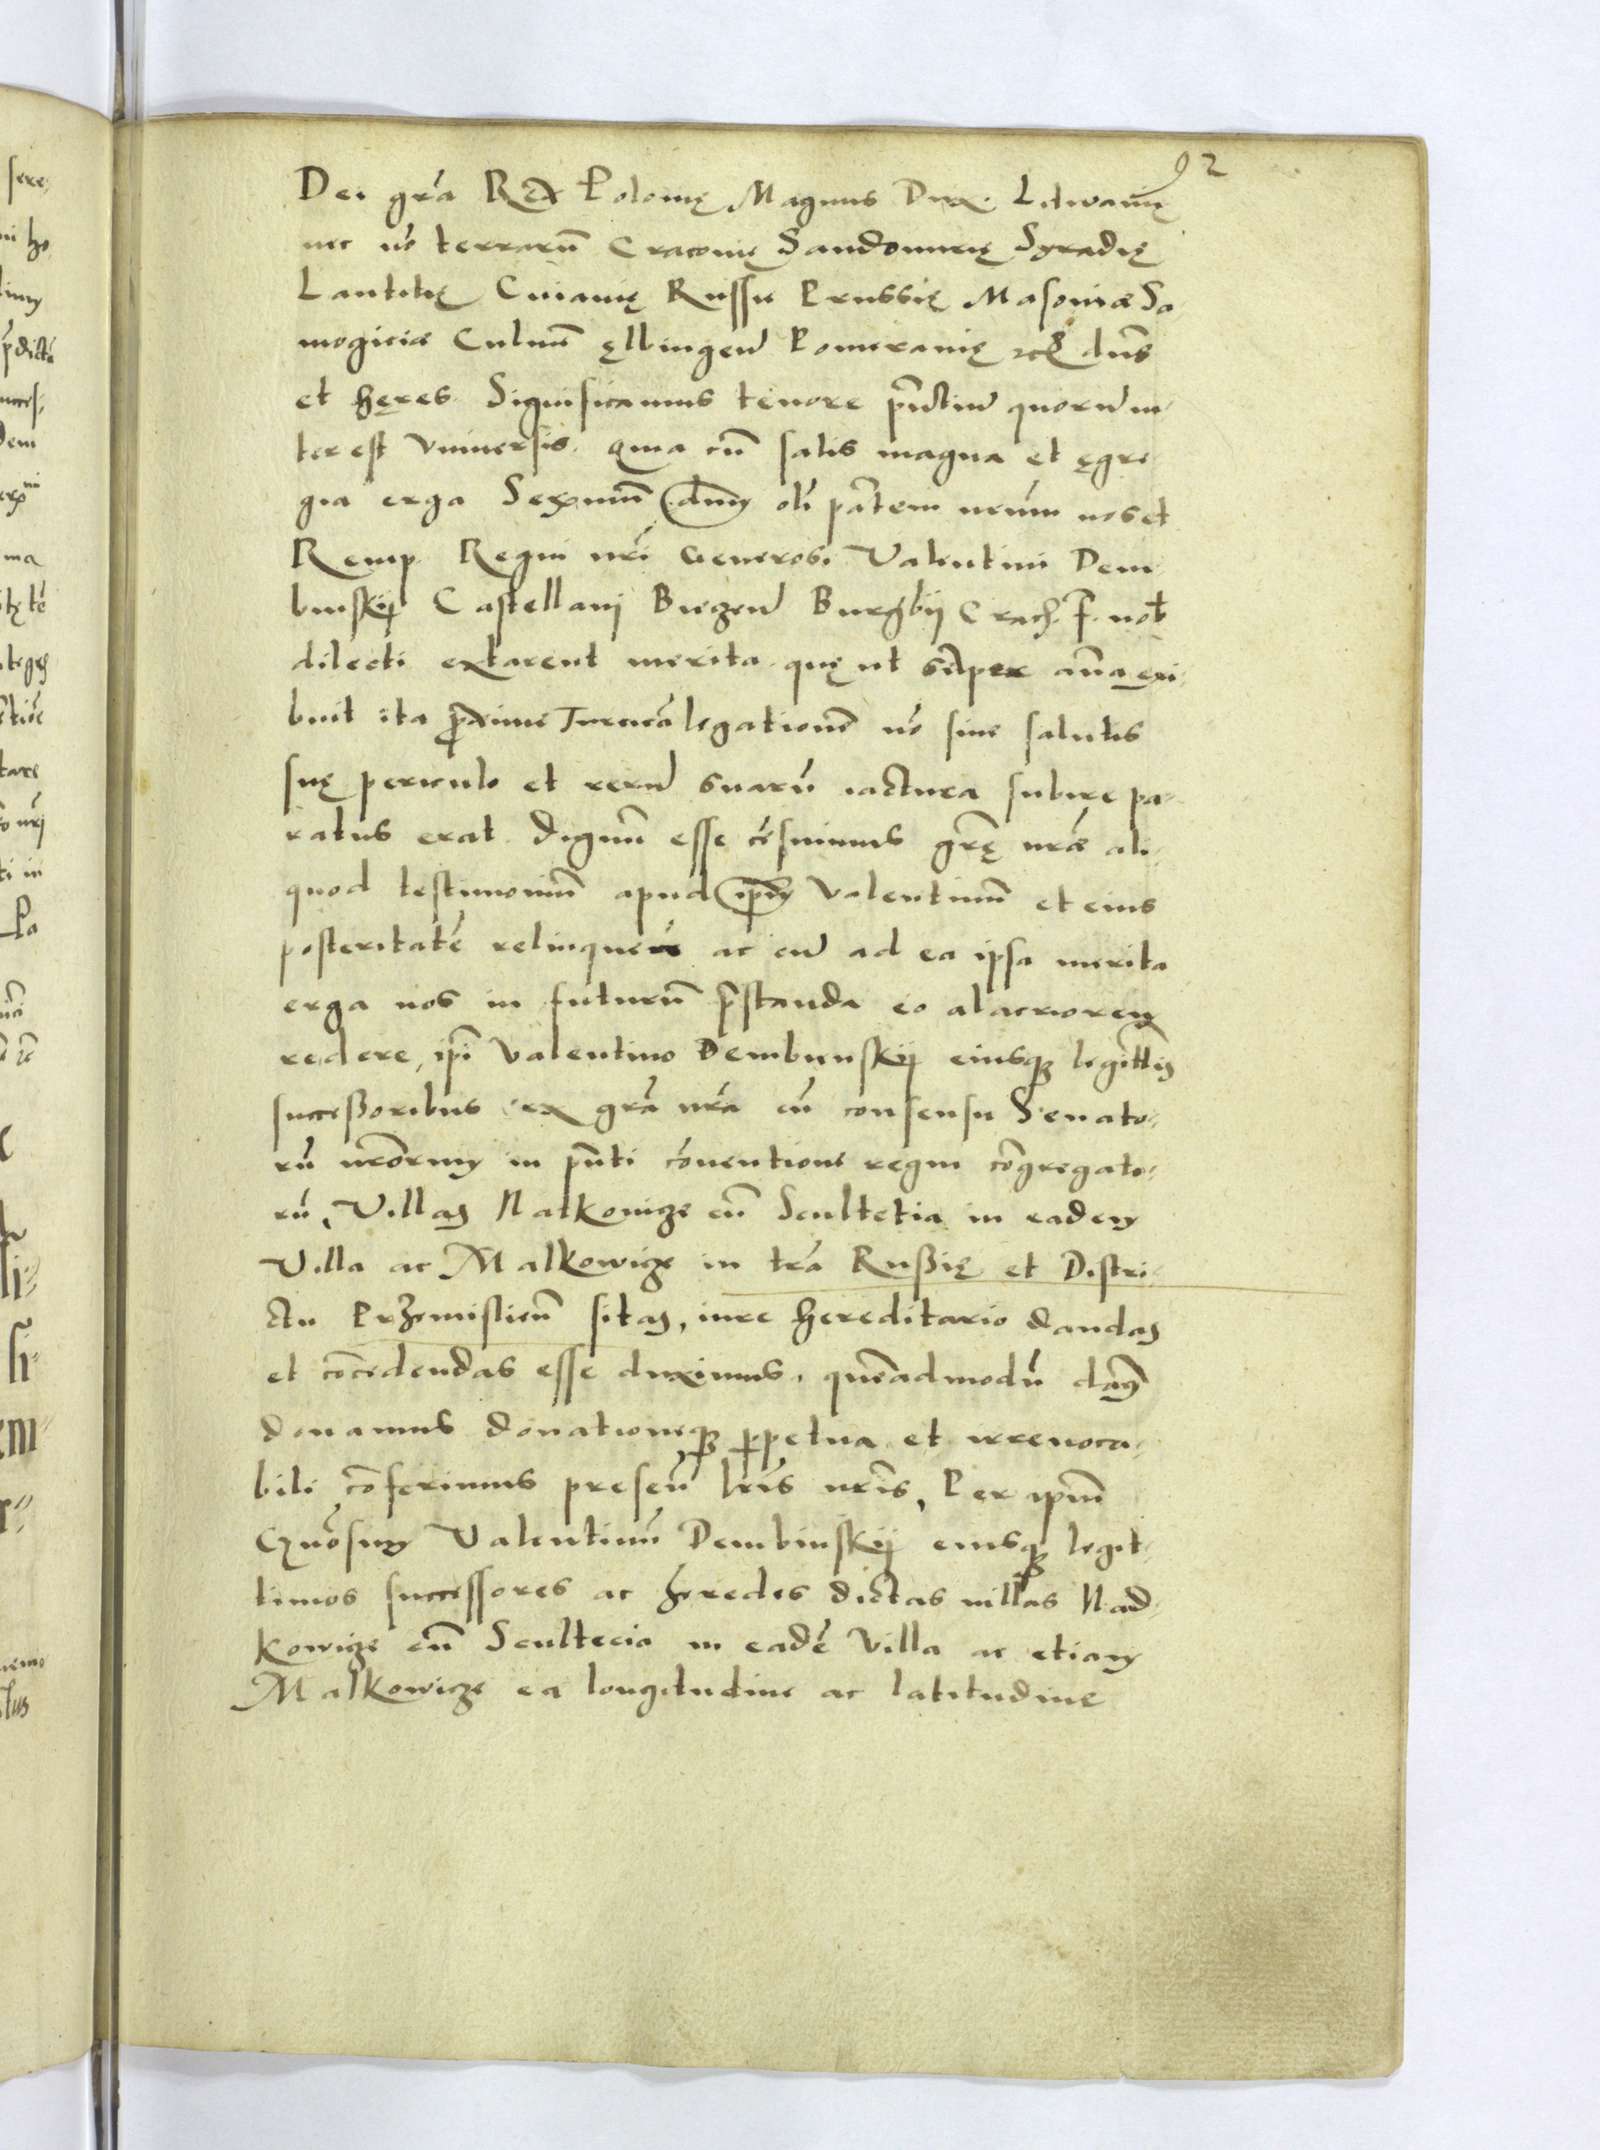 92
Dei grã Rex Polonię Magnus Dux Litwanię
nec nõ terrarũ Cracovię Sandomirię Syradię
Lantitię Cuiavię Russię Prussię Masoviæ Sa
mogiciæ Culmeñ Ęlbingeñ Pomeranię dñs
et hęres Significamus tenore pñtiũ quorũ in
terest Universis. Quia cũ satis magna et ęgre
gia erga Serxmũ dñm oĩ pãtem nrũm nos et
Remp. Regni nrĩ Generosi Valentini Dem
binskij Castellani Biezeñ Burgbij Crac. F. nob
dilecti extarent merita quę ut sẽper exi
buit ita proxime Turcicã legationẽ nõ sine salutis
suę periculo et rerũ suarũ iactura subire pa
ratus erat Dignũ esse cẽsuimus grẽ nræ ali
quod testimoniũ apud ipm Valentinũ et eius
posteritatẽ relinquere ac eũ ad ea ipsa merita
erga nos in futurũ pstanda eo alacriorem
redere, ipĩ Valentino Dembinskij eiusq legittis
successoribus ex grã nrã cũ consensu Senato-
rũ nrõrum in pñti cõventione regni cõgregato-
rũ, Villas Natkowicze cũ Scultetia in eadem
Villa ac Malkowicze in trã Russię et Distri
ctu Przemisliens sitas, iure hereditario dandas
et cõcedendas esse duximus, quẽadmodũ damus
donamus donationeq ppetua et irrevoca-
bili cõferimus preseñ lrĩs nrĩs, Per ipm
Gñosum Valentinũ Dembinskij eiusq legit-
timos successores ac heredes dictas villas Nad
kowicze cũ Scultecia in eadẽ Villa ac etiam
Malkowicze ea longitudine ac latitudine